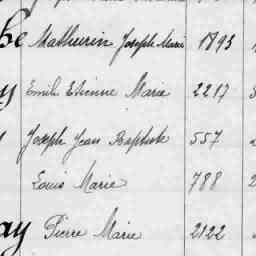 he Mathurin Joseph Marie 1893
y Emile Etienne Marie 2217
y Joseph Jean Baptiste 557
Louis Marie 788
ay Pierre Marie 2122